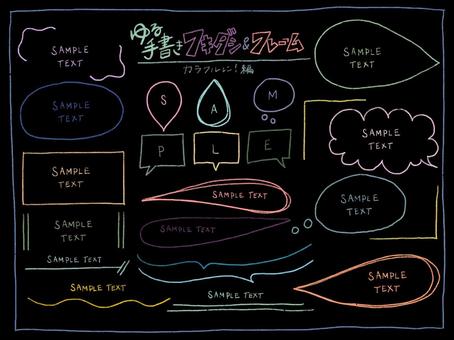 ゆる
手書き フキダシ&フレーム
カラフルペン!編
SAMPLE
TEXT
SAMPLE
TEXT
SAMPLE
TEXT
SAMPLE
TEXT
SAMPLE TEXT
SAMPLE TEXT
S
A
M
P
L
E
SAMPLE TEXT
SAMPLE TEXT
SAMPLE TEXT
SAMPLE
TEXT
SAMPLE
TEXT
SAMPLE
TEXT
SAMPLE
TEXT